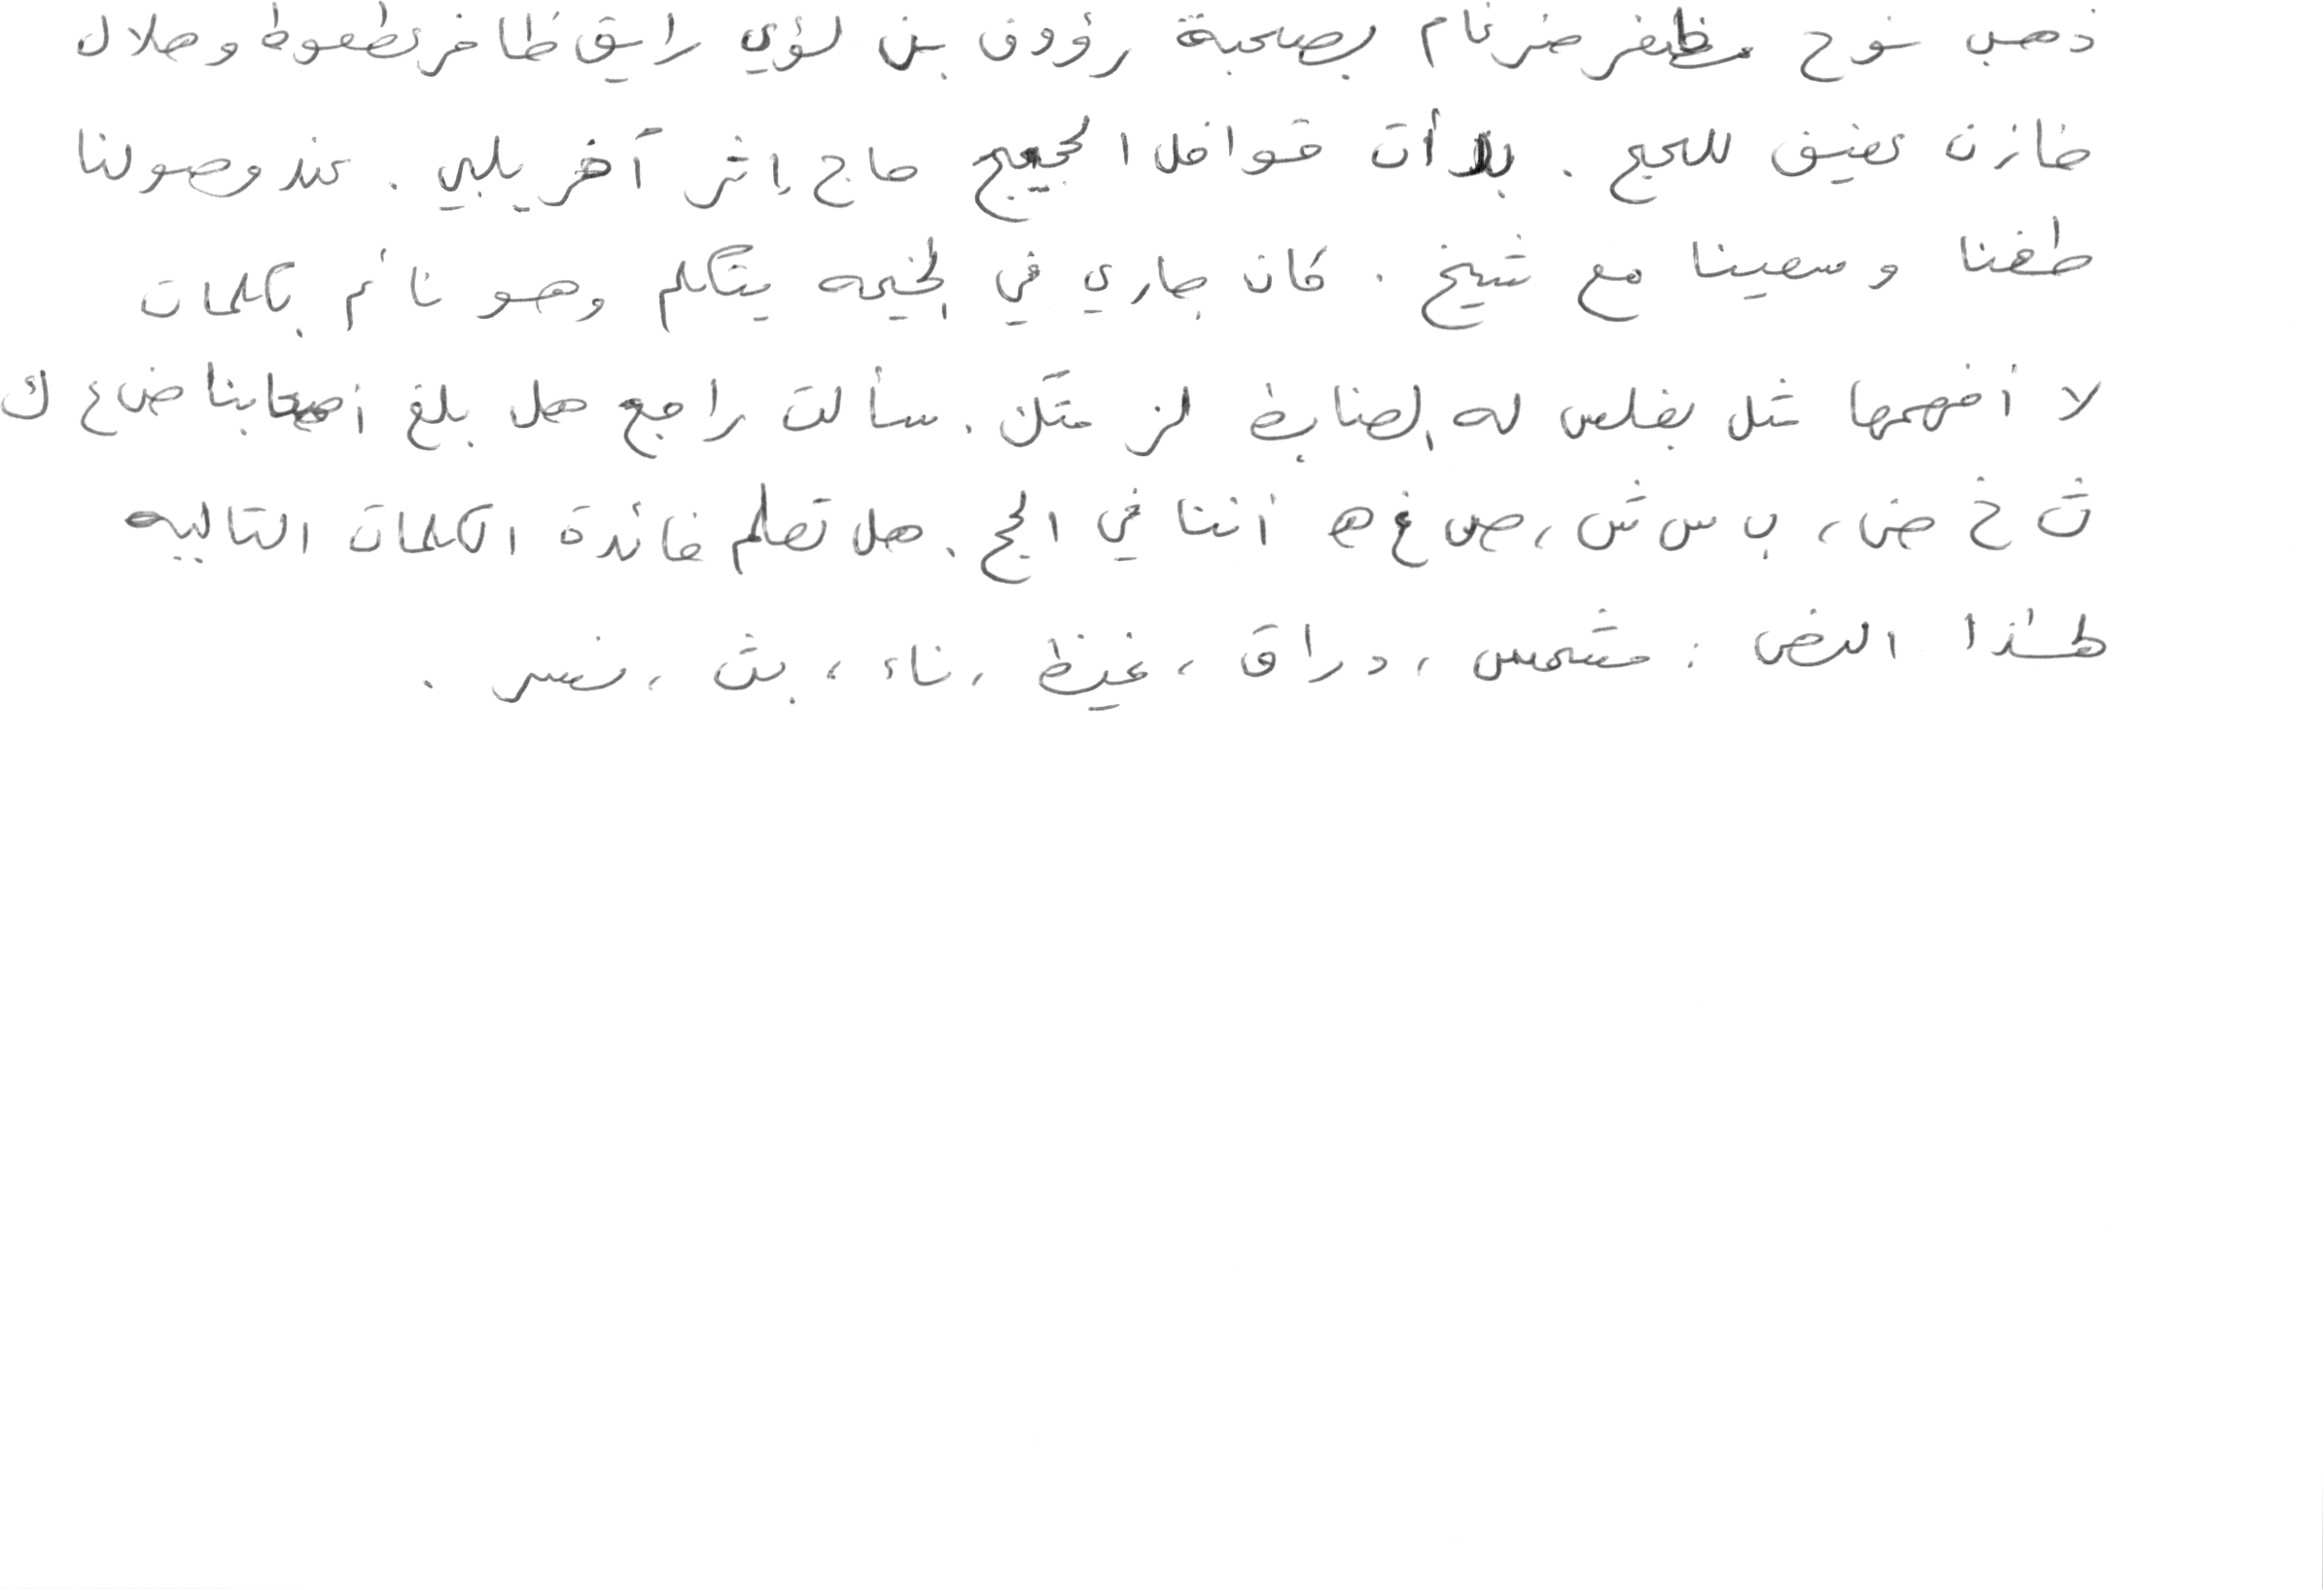 ذهب نوح مظفر ضرغام بصحبة رؤوف بن لؤي رايق ظافر عطعوط وهلال
خازن عفيف للحج . بدأت قوافل الحجيج حاج إثر آخر يلبي . عند وصولنا
طفنا وسعينا مع شيخ . كان جاري في الخيمه يتكلم وهو نائم بكلمات
لا أفهمها مثل بغلس له الضابط لز متك . سألت راجع هل بلغ أصحابنا ض ع ك
ث خ ض ، ب س ش ، ص غ ه أننا في الحج . هل تعلم فائدة الكلمات التاليه
لهذا النص : مشمس ، دراق ، غيظ ، ناء ، بث ، نفس .